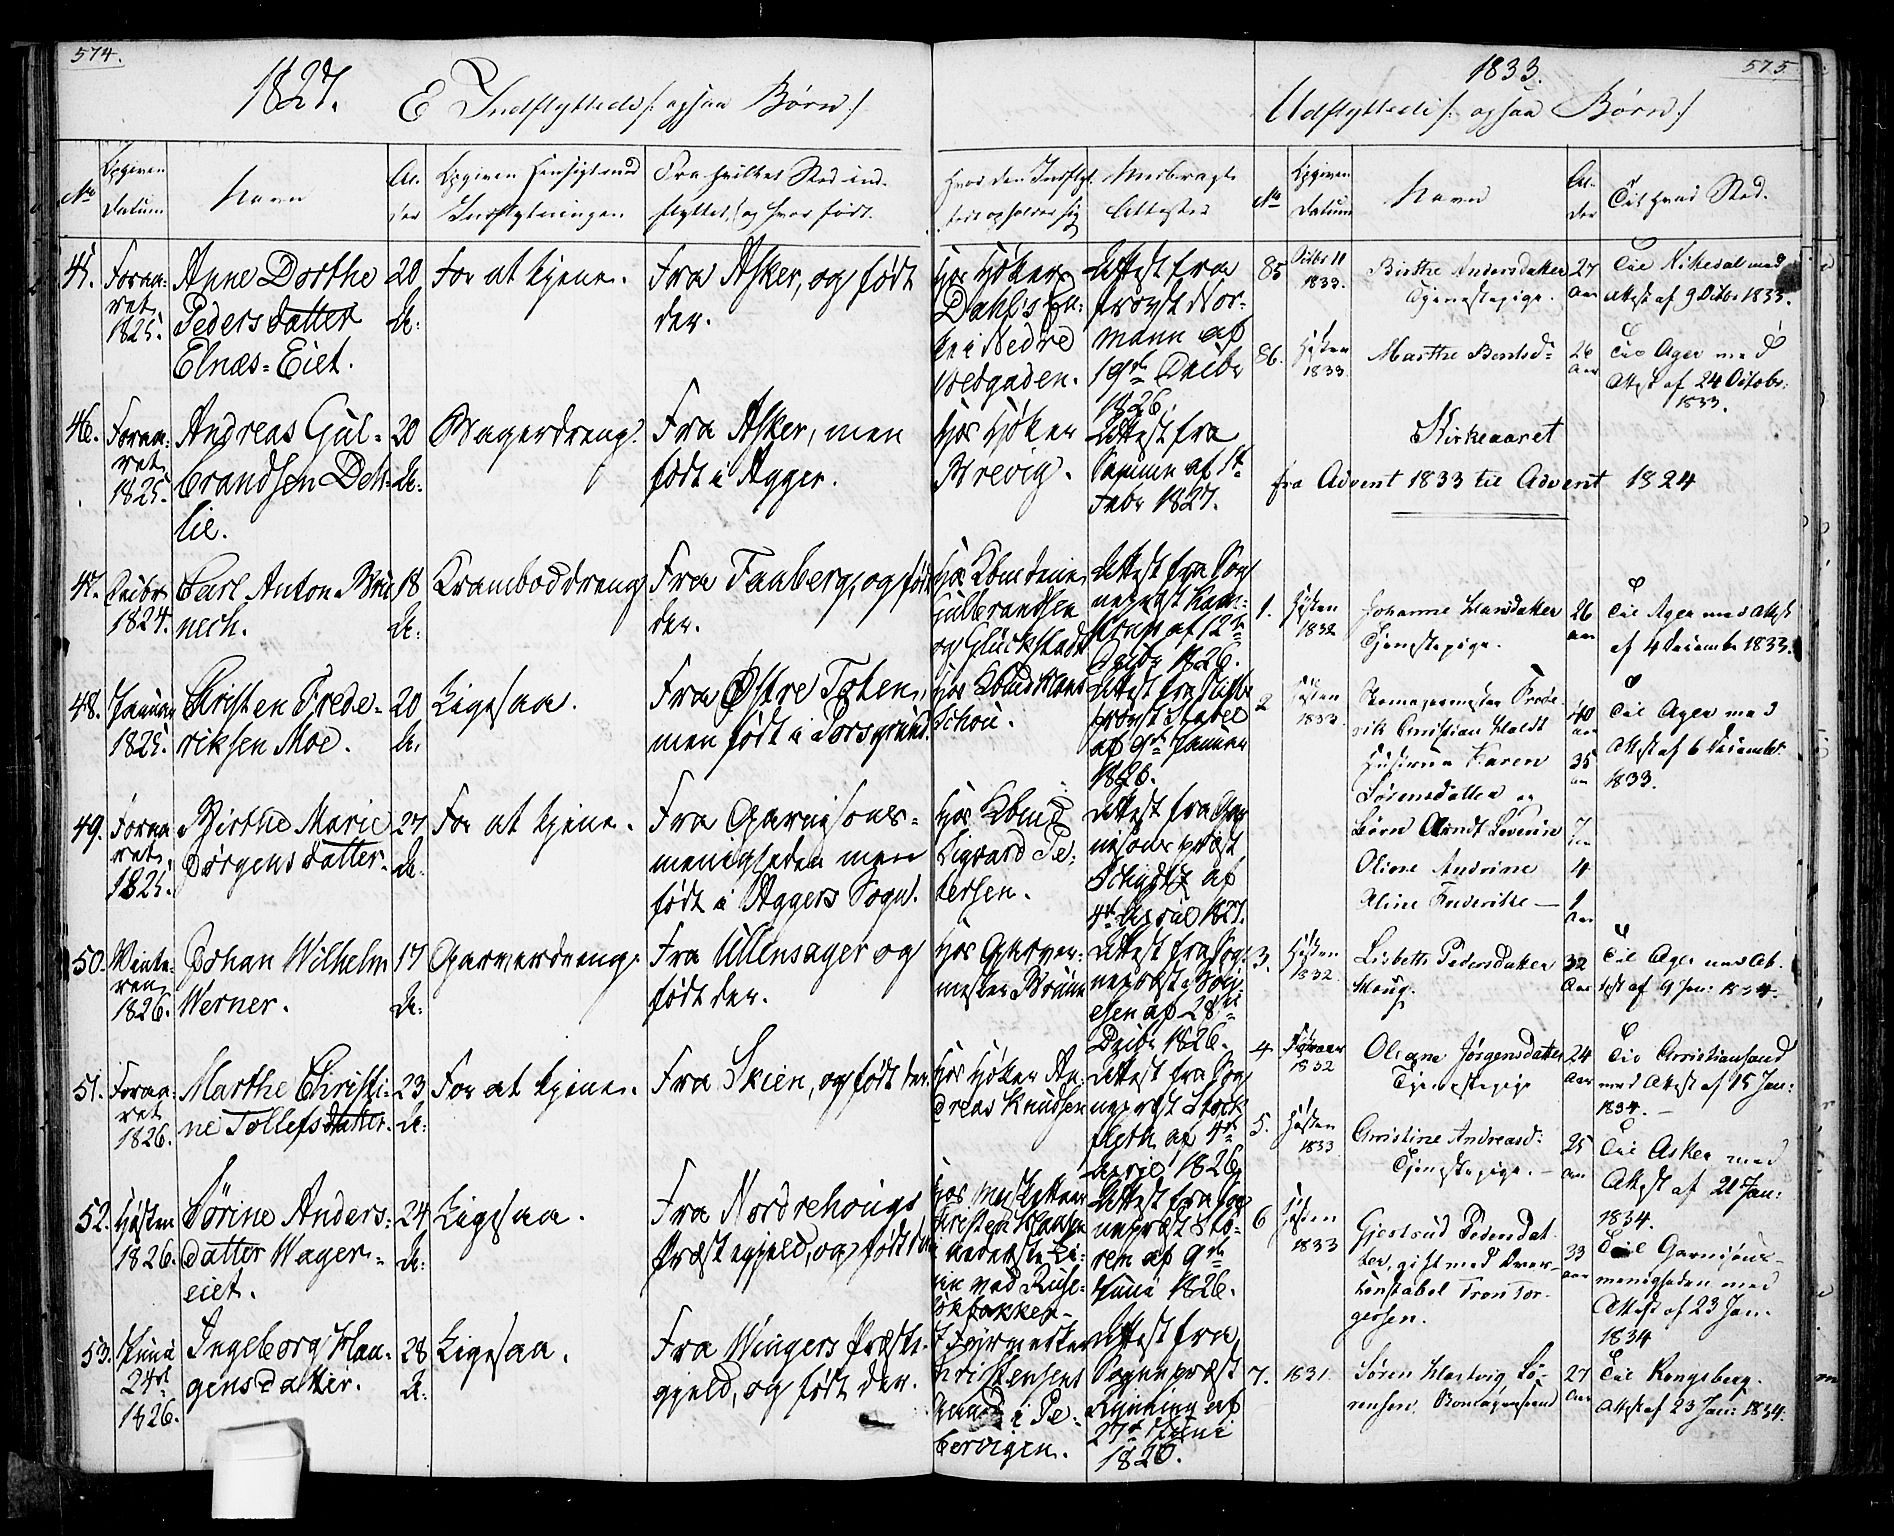 574.
1827. E Indflyttede /: ogsaa Børn :/
No
Opgiven Datum
Navn
Alder
Opgiven Hensigt med Indflytningen
Fra hvilket Sted indflyttet, og hvor født.
Hvor den Indflyttede opholder sig
Medbragte Attester
45. Foraaret 1825.
Anne Dorthe
Pedersdatter
Elnæs-Eiet.
20 A:
For at tjene.
Fra Asker, og født
der.
Hos Høker
Dahl's En-
ke i Nedre
Attest fra
Provst Nor-
mann af
19de Decbr
1826.
46. Foraaret 1825.
Andreas Gul-
brandsen Deh-
lie.
20 A:
Bagerdreng.
Fra Asker, men
født i Agger.
Hos Høker
Brevig.
Attest fra
Samme af 1st
Febr 1827.
47. Decbr 1824.
Carl Anton
18 A:
Kramboddreng
Fra Faaberg, og født
der.
Gulbrandsen
og Glückstadt
Attest fra Sog
af 12te
Decbr 1826.
48. Januar 1825.
Christen Frede-
riksen Moe.
20 A:
Ligesaa.
Fra Østre Toten,
men født i Porsgrund.
Schou.
Provst Stabel
af 9de Januar
1826.
49. Foraaret 1825.
Birthe Marie
Jørgensdatter.
27 A:
For at tjene.
Fra Garnisons-
menigheden men
født i Aggers Sogn.
Hos Kbmd
Sigvard Pe-
tersen.
Attest fra Gar
nisonspræst
af
4de April 1827.
50. Vinteren 1826.
Johan Wilhelm
Werner.
17 A:
Garverdreng.
Fra Ullensager og
født der.
Hos Garver-
mester
Attest fra Sog-
af 28de
Decbr 1826.
51. Foraaret 1826.
Marthe Christi-
ne Tollefsdatter.
23 A:
For at tjene.
Fra Skien, og født der.
Hos Høker An-
dreas Knudsen
Attest fra Sog
nepræst
fleth af 4de
April 1826.
52. Høsten 1826.
Sørine Anders-
datter Wager-
eiet.
24 A:
Ligesaa.
Fra Nordrehougs
Præstegjeld, og født der
Attest fra Sog
nepræst Sto-
ren af 9de
Juni 1826.
53. Juni 24de 1826.
Ingeborg Hau-
gensdatter.
28 A:
Ligesaa.
Fra Wingers Præste-
gjeld, og født der.
Christensens
Gaard i Pi-
pervigen.
Attest fra
Sognepræst
af
27de Juni
1826.
575.
1833.
Udflyttede /: ogsaa Børn :/
No
Opgiven Datum
Navn
Alder
Til hvad Sted.
85 Octbr 11 1833.
Birthe Andersdatter
Tjenestepige.
27 Aar
Til Nitedal med
Attest af 9 Octbr 1833.
86. Høsten 1833.
Marthe Berntsd=
26 Aar
Til Ager med
Attest af 24 Octobr:
1833.
Kirkeaaret
fra Advent 1833 til Advent 1824
1. Høsten 1832
Johanne Hansdatter
Tjenestepige.
26 Aar
Til Ager med Attest
af 4 December 1833.
2 Høsten 1833.
Frede-
rik Christian Holdt
Hustrue Karen
Sørensdatter og
Børn Arndt Severin
Oline Andrine
Aline Frederikke —
40 Aar
35 Aar
7
4
1 Aar
Til Ager med
Attest af 6 December
1833.
3. Høsten 1832.
Lisbeth Pedersdatter
Houg.
32 Aar
Til Ager med At-
test af 9 Jan: 1834.
4. Foraar 1832
Oleane Jørgensdatter
Tjenestepige
24 Aar
Til Christiansand
med Attest af 15 Jan:
1834. —
5. Høsten 1833
Christine Andreasd:
Tjenestepige. —
25 Aar
Til Asker med
Attest af 21 Jan:
1834.
6 Høsten 1833
Gjertrud Pedersdat-
ter, gift med Over-
konstabel Tron Tor-
gersen.
33 Aar
Til Garnisons-
menigheden med
Attest af 23 Jan.
1834
7. 1831.
Søren Hartvig Sø-
rensen.
27 Aar
Til Kongsberg.
Attest af 23 Jan: 1834.